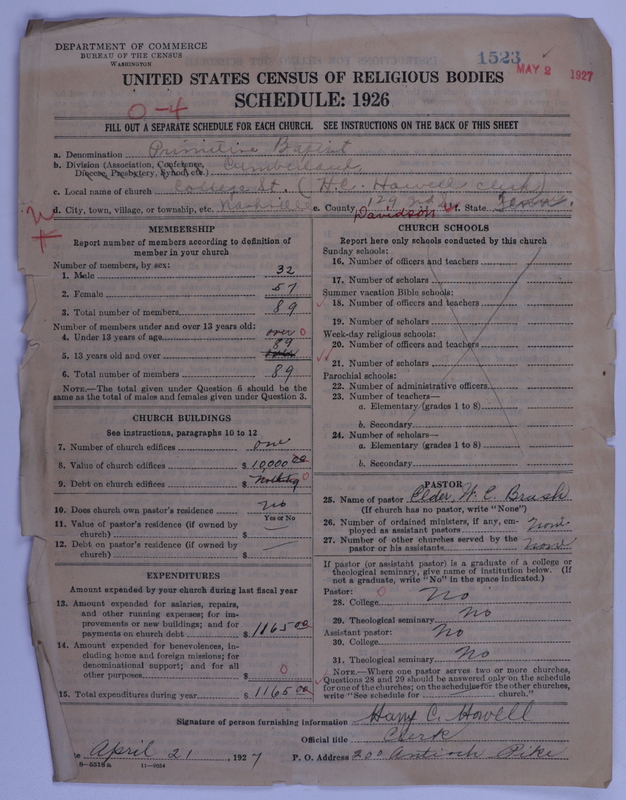 DEPARTMENT OF COMMERCE
BUREAU OF THE CENSUS
WASHINGTON
1523
MAY 2 1927
UNITED STATES CENSUS OF RELIGIOUS BODIES
SCHEDULE: 1926
0-4
FILL OUT A SEPARATE SCHEDULE FOR EACH CHURCH. SEE INSTRUCTIONS ON THE BACK OF THIS SHEET
a. Denomination Primitive Baptist
b. Division (Association, Conference, Diocese, Presbytery, Synod, etc.) Cumberland
c. Local name of church College St. (H.C. Howell clerk)
d. City, town, village, or township, etc. Nashville e. County Davidson f. State Tenn.
MEMBERSHIP
Report number of members according to definition of
member in your church
Number of members, by sex:
1. Male 32
2. Female 57
3. Total number of members 89
Number of members under and over 13 years old:
4. Under 13 years of age over 0
5. 13 years old and over 89
6. Total number of members 89
NOTE.—The total given under Question 6 should be the
same as the total of males and females given under Question 3.
CHURCH BUILDINGS
See instructions, paragraphs 10 to 12
7. Number of church edifices one
8. Value of church edifices $ 10,000.00
9. Debt on church edifices $ Nothing 0
10. Does church own pastor's residence no
Yes or No
11. Value of pastor's residence (if owned by
church) $
12. Debt on pastor's residence (if owned by
church) $
EXPENDITURES
Amount expended by your church during last fiscal year
13. Amount expended for salaries, repairs,
and other running expenses; for im-
provements or new buildings; and for
payments on church debt $ 1165.00
14. Amount expended for benevolences, in-
cluding home and foreign missions; for
denominational support; and for all
other purposes $ 0
15. Total expenditures during year $ 1165.00
CHURCH SCHOOLS
Report here only schools conducted by this church
Sunday schools:
16. Number of officers and teachers
17. Number of scholars
Summer vacation Bible schools:
18. Number of officers and teachers
19. Number of scholars
Week-day religious schools:
20. Number of officers and teachers
21. Number of scholars
Parochial schools:
22. Number of administrative officers
23. Number of teachers—
a. Elementary (grades 1 to 8)
b. Secondary
24. Number of scholars—
a. Elementary (grades 1 to 8)
b. Secondary
PASTOR
25. Name of pastor Elder W. C. Brush
(If church has no pastor, write "None")
26. Number of ordained ministers, if any, em-
ployed as assistant pastors none
27. Number of other churches served by the
pastor or his assistants none
If pastor (or assistant pastor) is a graduate of a college or
theological seminary, give name of institution below. (If
not a graduate, write "No" in the space indicated.)
Pastor: 0
28. College No
29. Theological seminary No
Assistant pastor:
30. College No
31. Theological seminary No
NOTE.—Where one pastor serves two or more churches,
Questions 28 and 29 should be answered only on the schedule
for one of the churches; on the schedules for the other churches,
write "See schedule for church."
Signature of person furnishing information Harry C. Howell
Official title Clerk
April 21, 1927 P. O. Address 200 Antioch Pike
8-5518a 11-9054